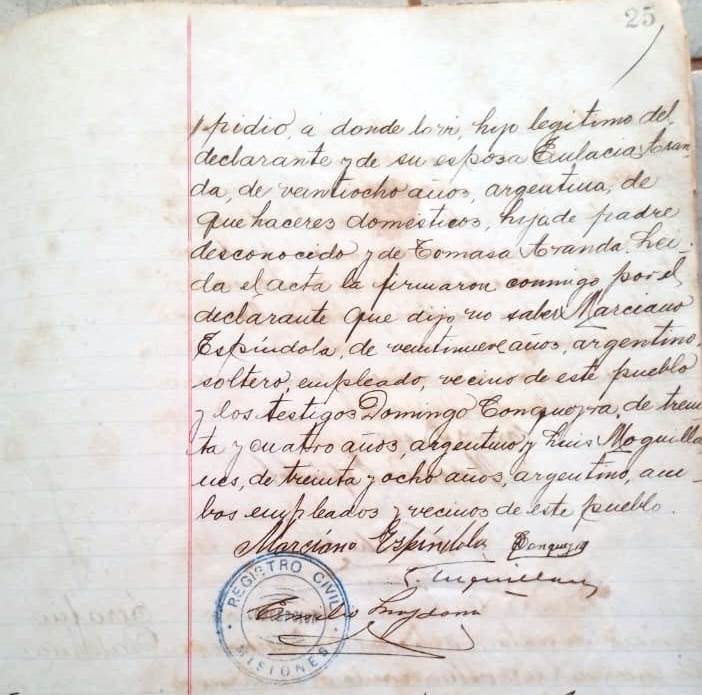 25
pidio, á donde
hijo legitimo del
declarante y de su esposa Eulacia Aran-
da, de veintiocho años, argentina, de
que haceres domésticos, hija de padre
desconocido y de Tomasa Aranda. Leí-
da el acta la firmaron conmigo por el
declarante que dijo no saber Marciano
Espíndola, de veintinueve años, argentino,
soltero, empleado, vecino de este pueblo
y los testigos Domingo de trein
ta y cuatro años, argentino y Luis
de treinta y ocho años, argentino, am-
bos empleados y vecinos de este pueblo.
Marciano Espíndola
REGISTRO CIVIL
MISIONES